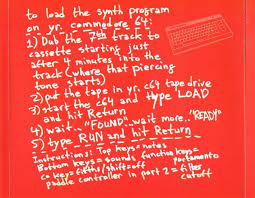 to load the synth program
on yr. commodore 64:
1) Dub the 7th track to
cassette starting just
after 4 minutes into the
track (where that piercing
tone starts)
2) put the tape in yr. c64 tape drive
3) start the c64 and type LOAD
and hit Return
4) wait.. "FOUND".. wait more.. "READY"
5) type RUN and hit Return
Instructions: Top keys=notes
Bottom keys=sounds function keys=
portamento
c= key=fifths/shift=off
paddle controller in part 2 = filter
cutoff